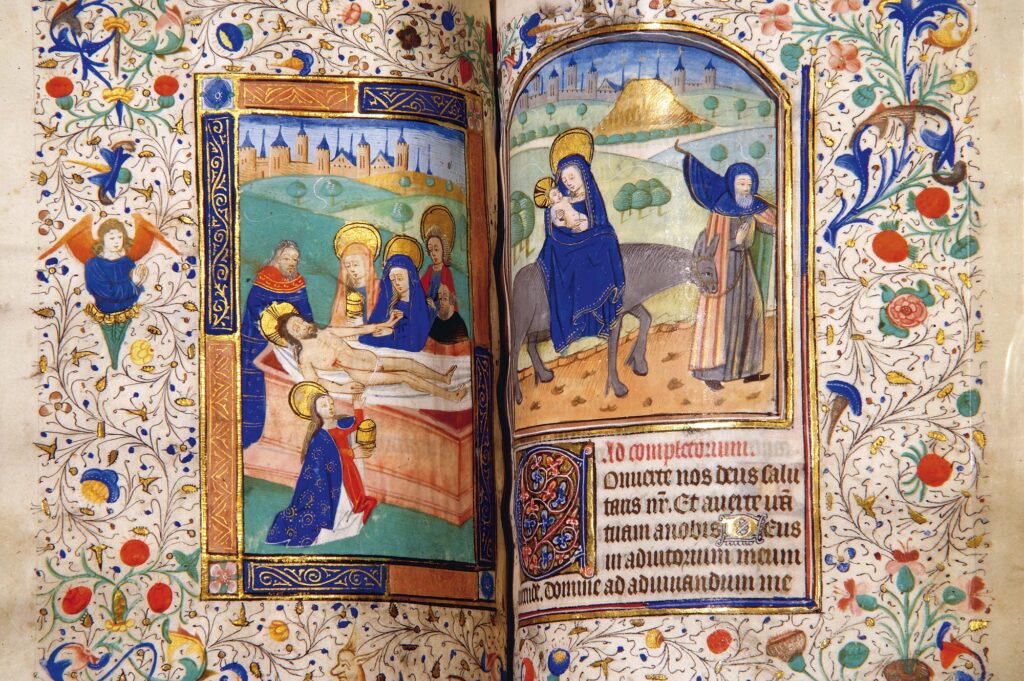 Ad completorium.
Conuerte nos deus salu
taris nr̄. Et auerte irā
tuam a nobis Deus
in adiutorium meum
tende. domine ad adiuuandum me